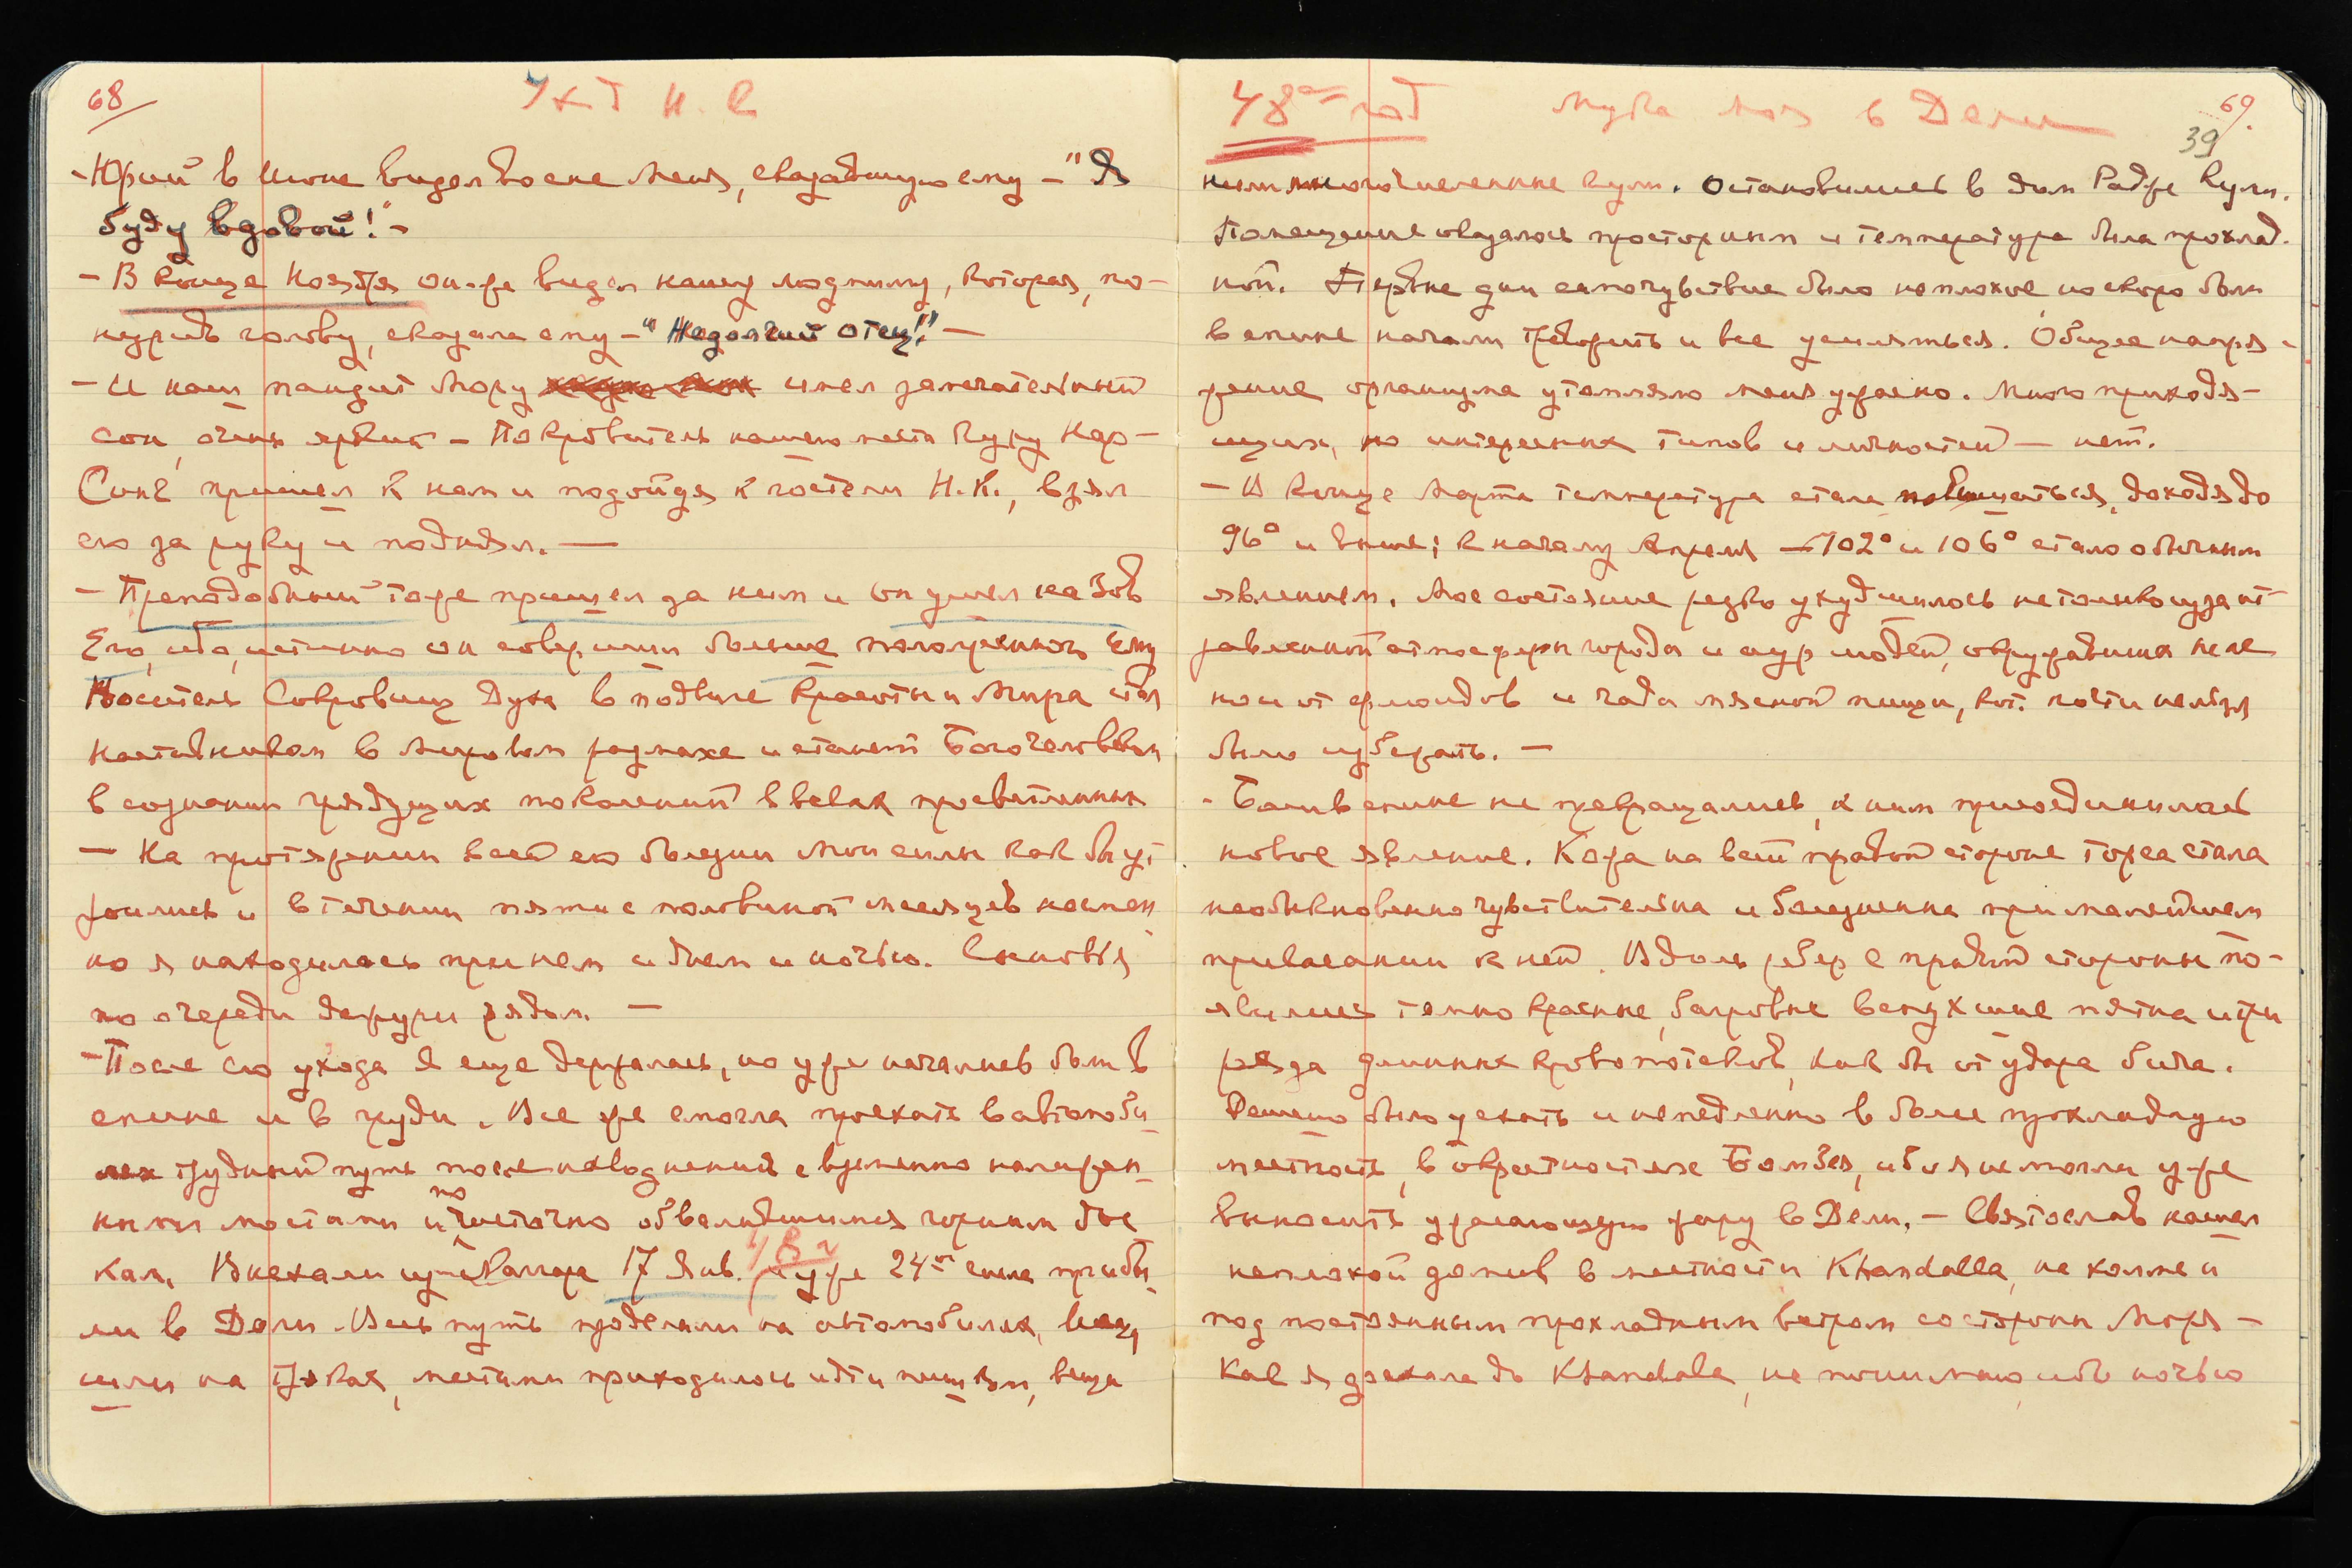 68
Ухд Н. К
- Юрий в Июне видел во сне меня, сказавшую ему - "Я
буду вдовой!" -
- В конце Ноября он-же видел нашу Людмилу, которая, по-
нурив голову, сказала ему - "Недолгий отец!" -
- И наш пандит Мору имел замечательный
сон, очень яркий - Покровитель нашего места Гуру Нар-
Синг пришел к нам и подойдя к постели Н.К., взял
его за руку и поднял. —
- Преподобный тоже пришел за ним и он ушел на Зов
Его, ибо, истинно он совершил больше положенного ему
Носитель Сокровищ Духа в подвиге Красоты и Мира стал
наставником в мировом размахе и станет Богочеловеком
в сознании грядущих поколений в веках просветленных
— На протяжении всей его болезни мои силы как бы ут
роились и в течении пяти с половиной месяцев неотлон
но я находилась при нем и днем и ночью. Сыновья
по очереди дежурили рядом. —
- После его ухода я еще держалась, но уже начались боли в
спине и в груди. Все же смогла проехать в автомоби
лях трудный путь после наводнений с временно налажен
ными мостами и по частично обвалившимся горным до
кам. Выехали из Наггара 17 Янв. 48 г и уже 24го числа прибы
ли в Дели. Весь путь проделали на автомобилях, вещи
шли на траках, местами приходилось идти пешком, вещи
48ой год Мука моя в Дели 69.
39
несли многочисленные кули. Остановились в дом Радже Кули.
Помещение оказалось просторным и температура была прохлад.
ной. Первые дни самочувствие было неплохое но скоро боли
в спине начали тревожить и все усиляться. Общее напря
жение организма утомляло меня ужасно. Много приходя-
щих, но интересных типов и личностей — нет.
- В конце Марта температура стала повышаться, доходя до
96° и выше; к началу Апреля — 102° и 106° стало обычным
явлением. Мое состояние резко ухудшилось не только из за от
равленной атмосферы города и аур людей, окружавших меня
но и от флюидов и чада мясной пищи, кот. почти нельзя
было избежать. —
- Боли в спине не прекращались, к ним присоединилось
новое явление. Кожа на всей правой стороне торса стала
необыкновенно чувствительна и болезненна при малейшем
прикасании к ней. Вдоль ребер с правой стороны по-
явились темно красные, багровые вспухшие пятна и три
ряда длинных кровоподтеков, как бы от удара бича.
Решено было уехать и немедленно в более прохладную
местность, в окрестностях Бомбея, ибо я не могла уже
выносить ужасающую жару в Дели. - Святослав нашел
неплохой домик в местности Khandalla, на холме и
под постоянным прохладным ветром со стороны Моря -
Как я доехала до Khandala, не понимаю, ибо ночью